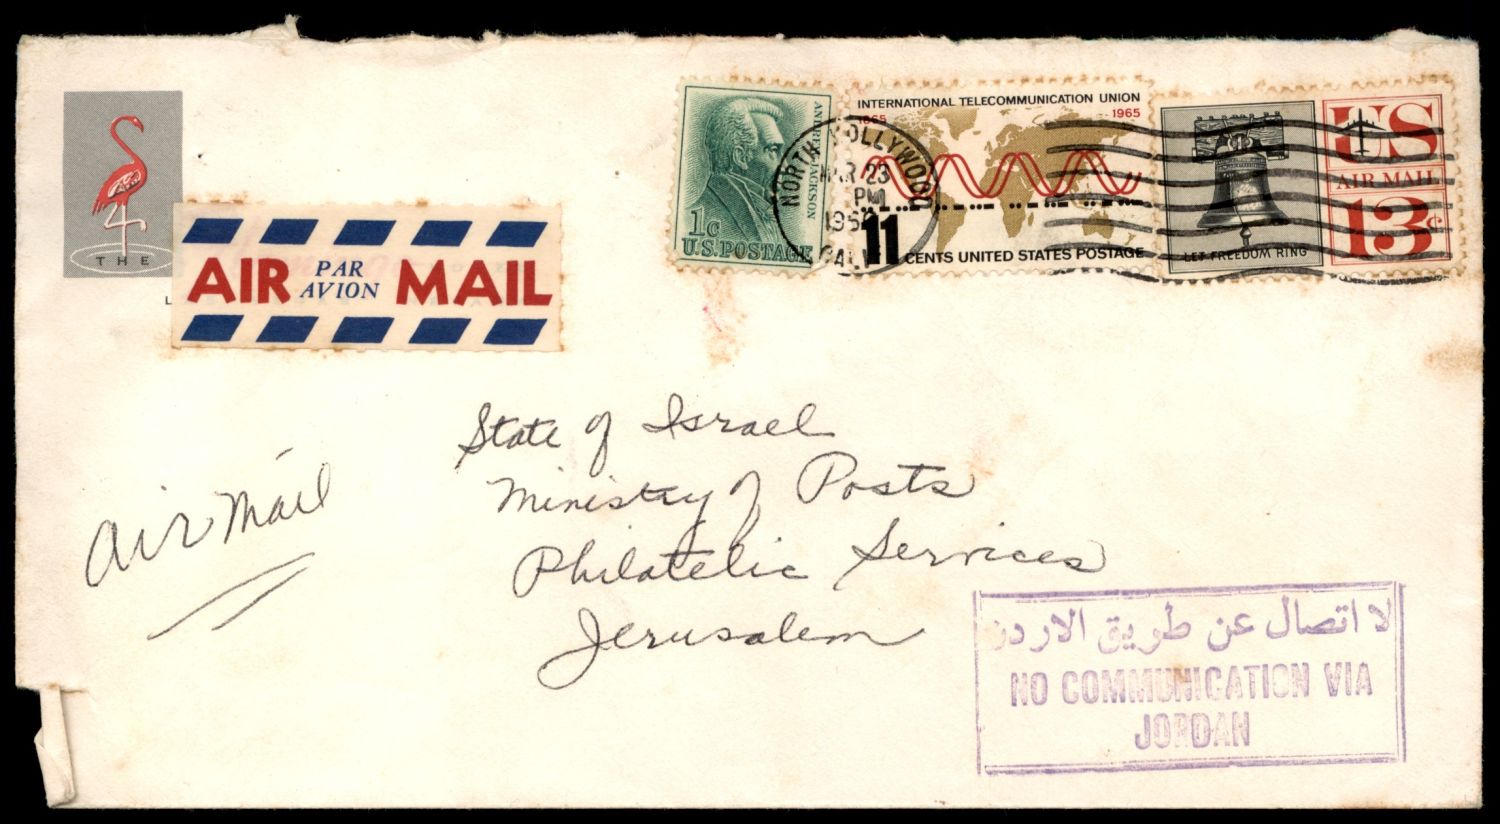 1c
U.S. POSTAGE
ANDREW JACKSON
INTERNATIONAL TELECOMMUNICATION UNION
1865 1965
11 CENTS UNITED STATES POSTAGE
NORTH HOLLYWOOD
MAR 23
PM
CALIF
LET FREEDOM RING
US
AIR MAIL
13c
THE
AIR PAR AVION MAIL
State of Israel
Ministry of Posts
Philatelic Services
Jerusalem
Air Mail
لا اتصال عن طريق الاردن
NO COMMUNICATION VIA
JORDAN